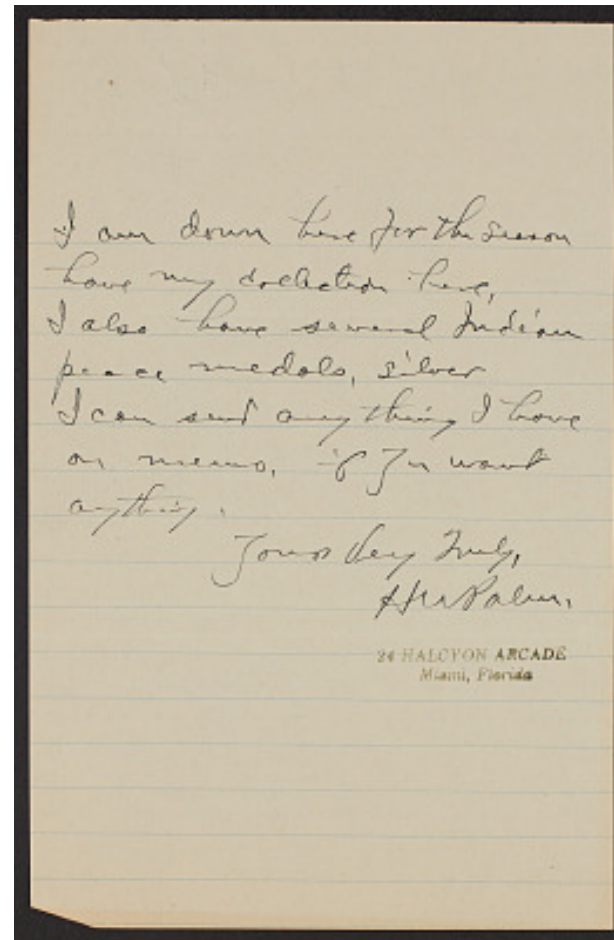 I am down here for the season
have my collection here,
I also have several Indian
peace medals, silver
I can send anything I have
on memo, if you want
anything.
Yours Very Truly,
24 HALCYON ARCADE
Miami, Florida